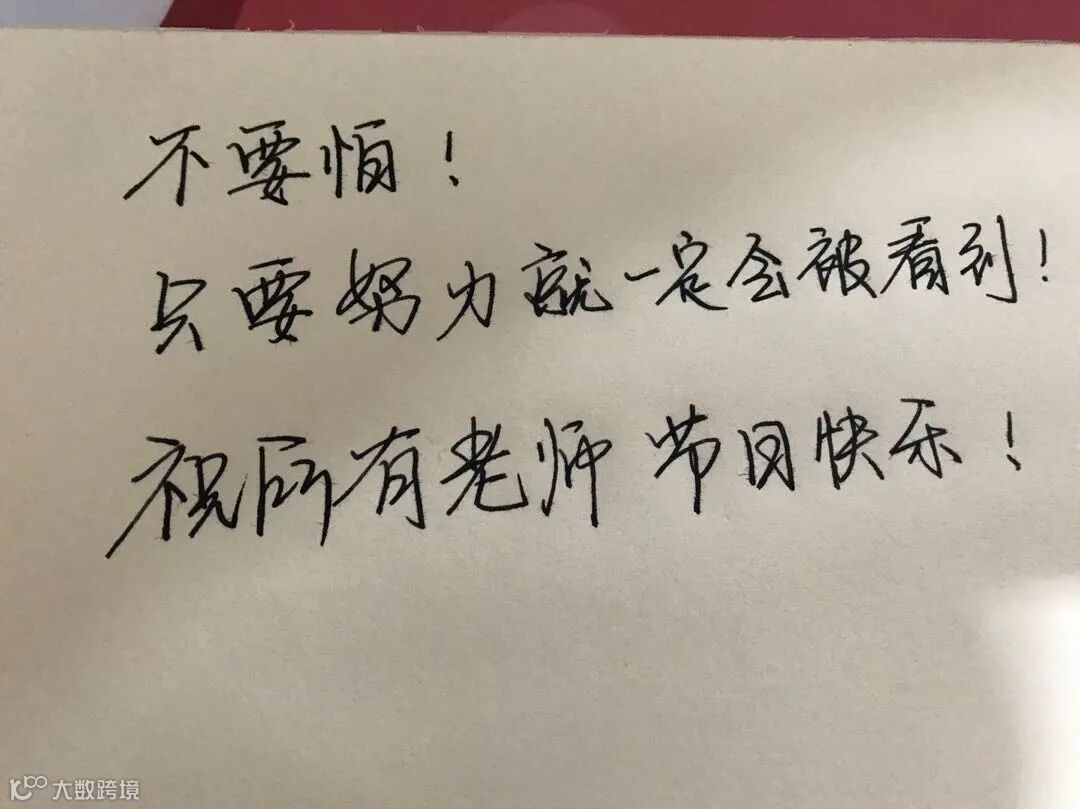 不要怕！
只要努力就一定会被看到！
祝所有老师 节日快乐！
大数跨境